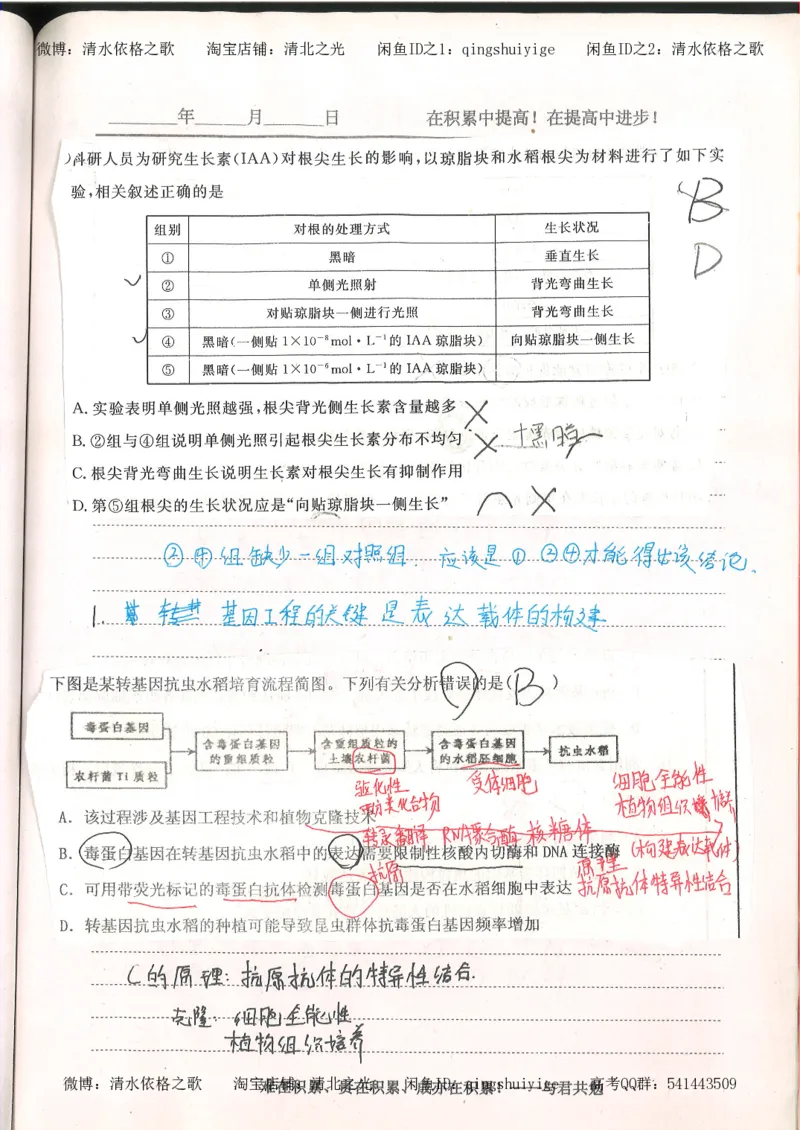 微博：清水依格之歌 淘宝店铺：清北之光 闲鱼ID之1：qingshuiyige 闲鱼ID之2：清水依格之歌
______年_____月______日 在积累中提高！在提高中进步！
科研人员为研究生长素(IAA)对根尖生长的影响,以琼脂块和水稻根尖为材料进行了如下实
验,相关叙述正确的是
B
D
组别 对根的处理方式 生长状况
① 黑暗 垂直生长
② 单侧光照射 背光弯曲生长
③ 对贴琼脂块一侧进行光照 背光弯曲生长
④ 黑暗(一侧贴1×10⁻⁸mol·L⁻¹的IAA琼脂块) 向贴琼脂块一侧生长
⑤ 黑暗(一侧贴1×10⁻⁶mol·L⁻¹的IAA琼脂块)
A.实验表明单侧光照越强,根尖背光侧生长素含量越多 ×
B.②组与④组说明单侧光照引起根尖生长素分布不均匀 × +黑暗
C.根尖背光弯曲生长说明生长素对根尖生长有抑制作用
D.第⑤组根尖的生长状况应是“向贴琼脂块一侧生长” ×
②④组缺少一组对照组，应该是①②④才能得出该结论.
1. 基因工程的关键是表达载体的构建
下图是某转基因抗虫水稻培育流程简图。下列有关分析错误的是( B )
毒蛋白基因
农杆菌 Ti 质粒
含毒蛋白基因的重组质粒
含重组质粒的土壤农杆菌
含毒蛋白基因的水稻胚细胞
抗虫水稻
受体细胞
细胞全能性
植物组织培养
A. 该过程涉及基因工程技术和植物克隆技术
转录翻译 RNA聚合酶 核糖体
B. 毒蛋白基因在转基因抗虫水稻中的表达需要限制性核酸内切酶和 DNA 连接酶 (构建表达载体)
抗原 原理
C. 可用带荧光标记的毒蛋白抗体检测毒蛋白基因是否在水稻细胞中表达 抗原抗体特异性结合
D. 转基因抗虫水稻的种植可能导致昆虫群体抗毒蛋白基因频率增加
C的原理：抗原抗体的特异性结合.
克隆：细胞全能性
植物组织培养
微博：清水依格之歌 淘宝店铺：清北之光 闲鱼ID：qingshuiyige 高考QQ群：541443509
难在积累、贵在积累、成亦在积累！——与君共勉